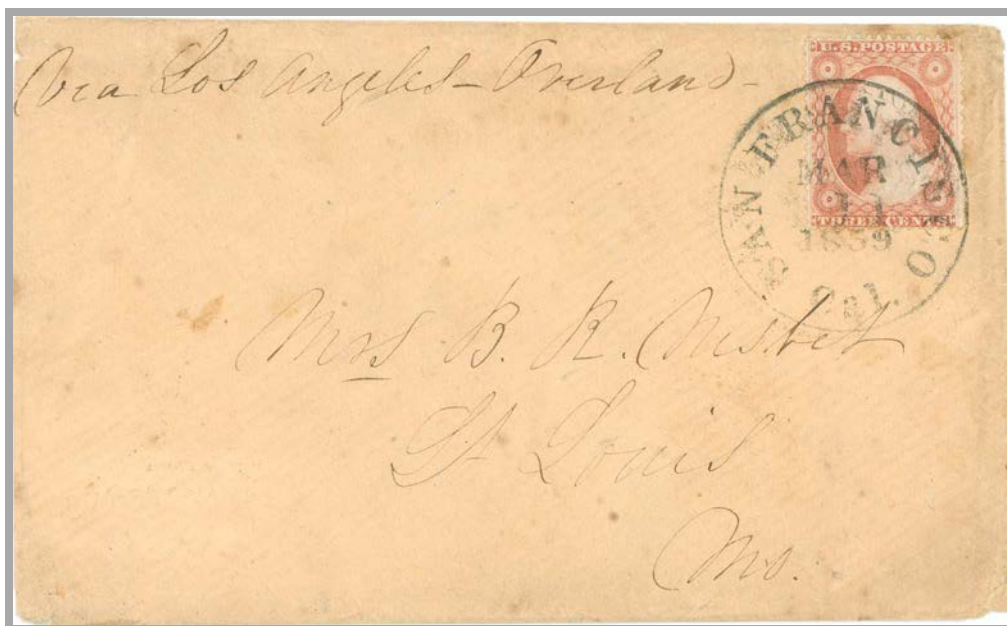 Via Los Angeles - Overland -
U.S. POSTAGE
THREE CENTS
SAN FRANCISCO
MAR
11
1859
Cal.
Mrs B. R. Nisbet
St Louis
Mo.